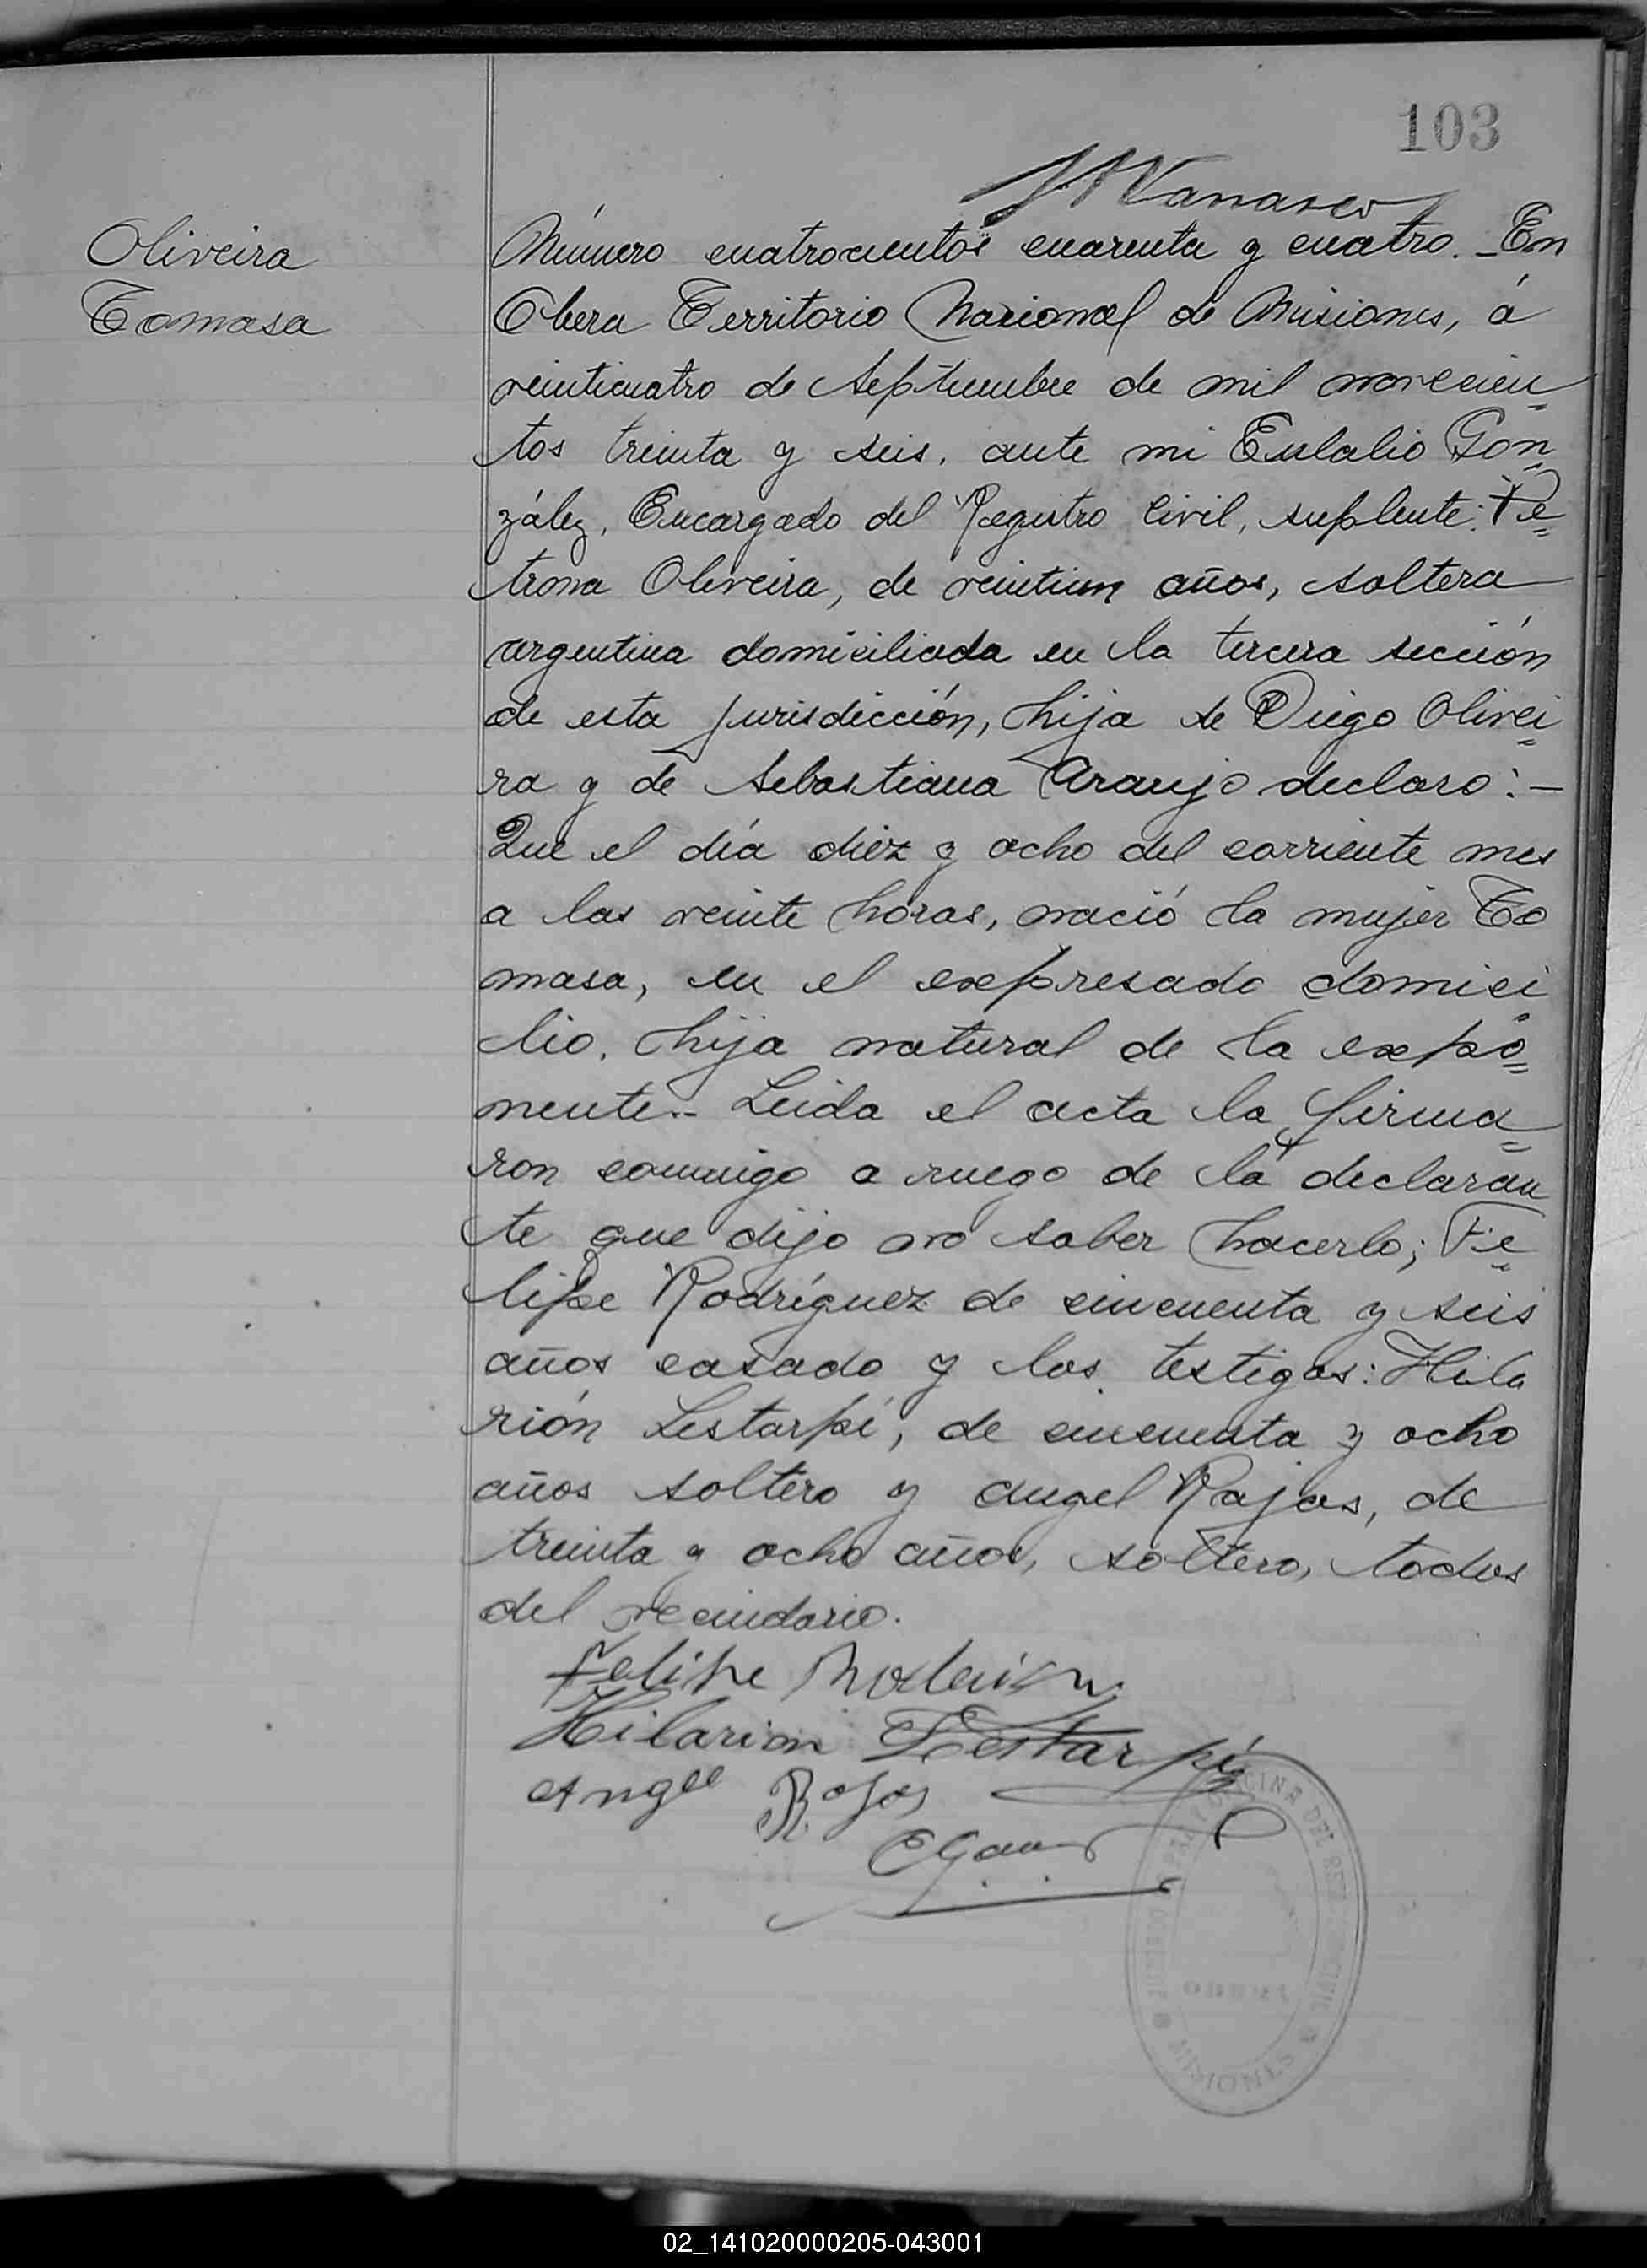 103
Oliveira
Tomasa
Número cuatrocientos cuarenta y cuatro. - En
Obera Territorio Nacional de Misiones, á
veinticuatro de Septiembre de mil novecien=
tos treinta y seis, ante mi Eulalio Gon=
zález, Encargado del Registro Civil, suplente: Pe=
trona Oliveira, de veintiun años, soltera
argentina domiciliada en la tercera sección
de esta jurisdicción, hija de Diego Olivei=
ra y de Sebastiana Araujo declaro: -
Que el día diez y ocho del corriente mes
a las veinte horas, nació la mujer To
masa, en el expresado domici
lio, hija natural de la expo=
nente.- Leida el acta la firma=
ron conmigo a ruego de la declaran
te que dijo no saber hacerlo; Fe=
lipe Rodríguez de cincuenta y seis
años casado y los testigos: Hila
rión Lestarpé, de cincuenta y ocho
años soltero y angel Rojas, de
treinta y ocho años, soltero, todos
del vecindario.
Felipe
Hilarion Lestarpé
Angel Rojas
OFICINA DEL REG CIVIL
MISIONES
02_141020000205-043001